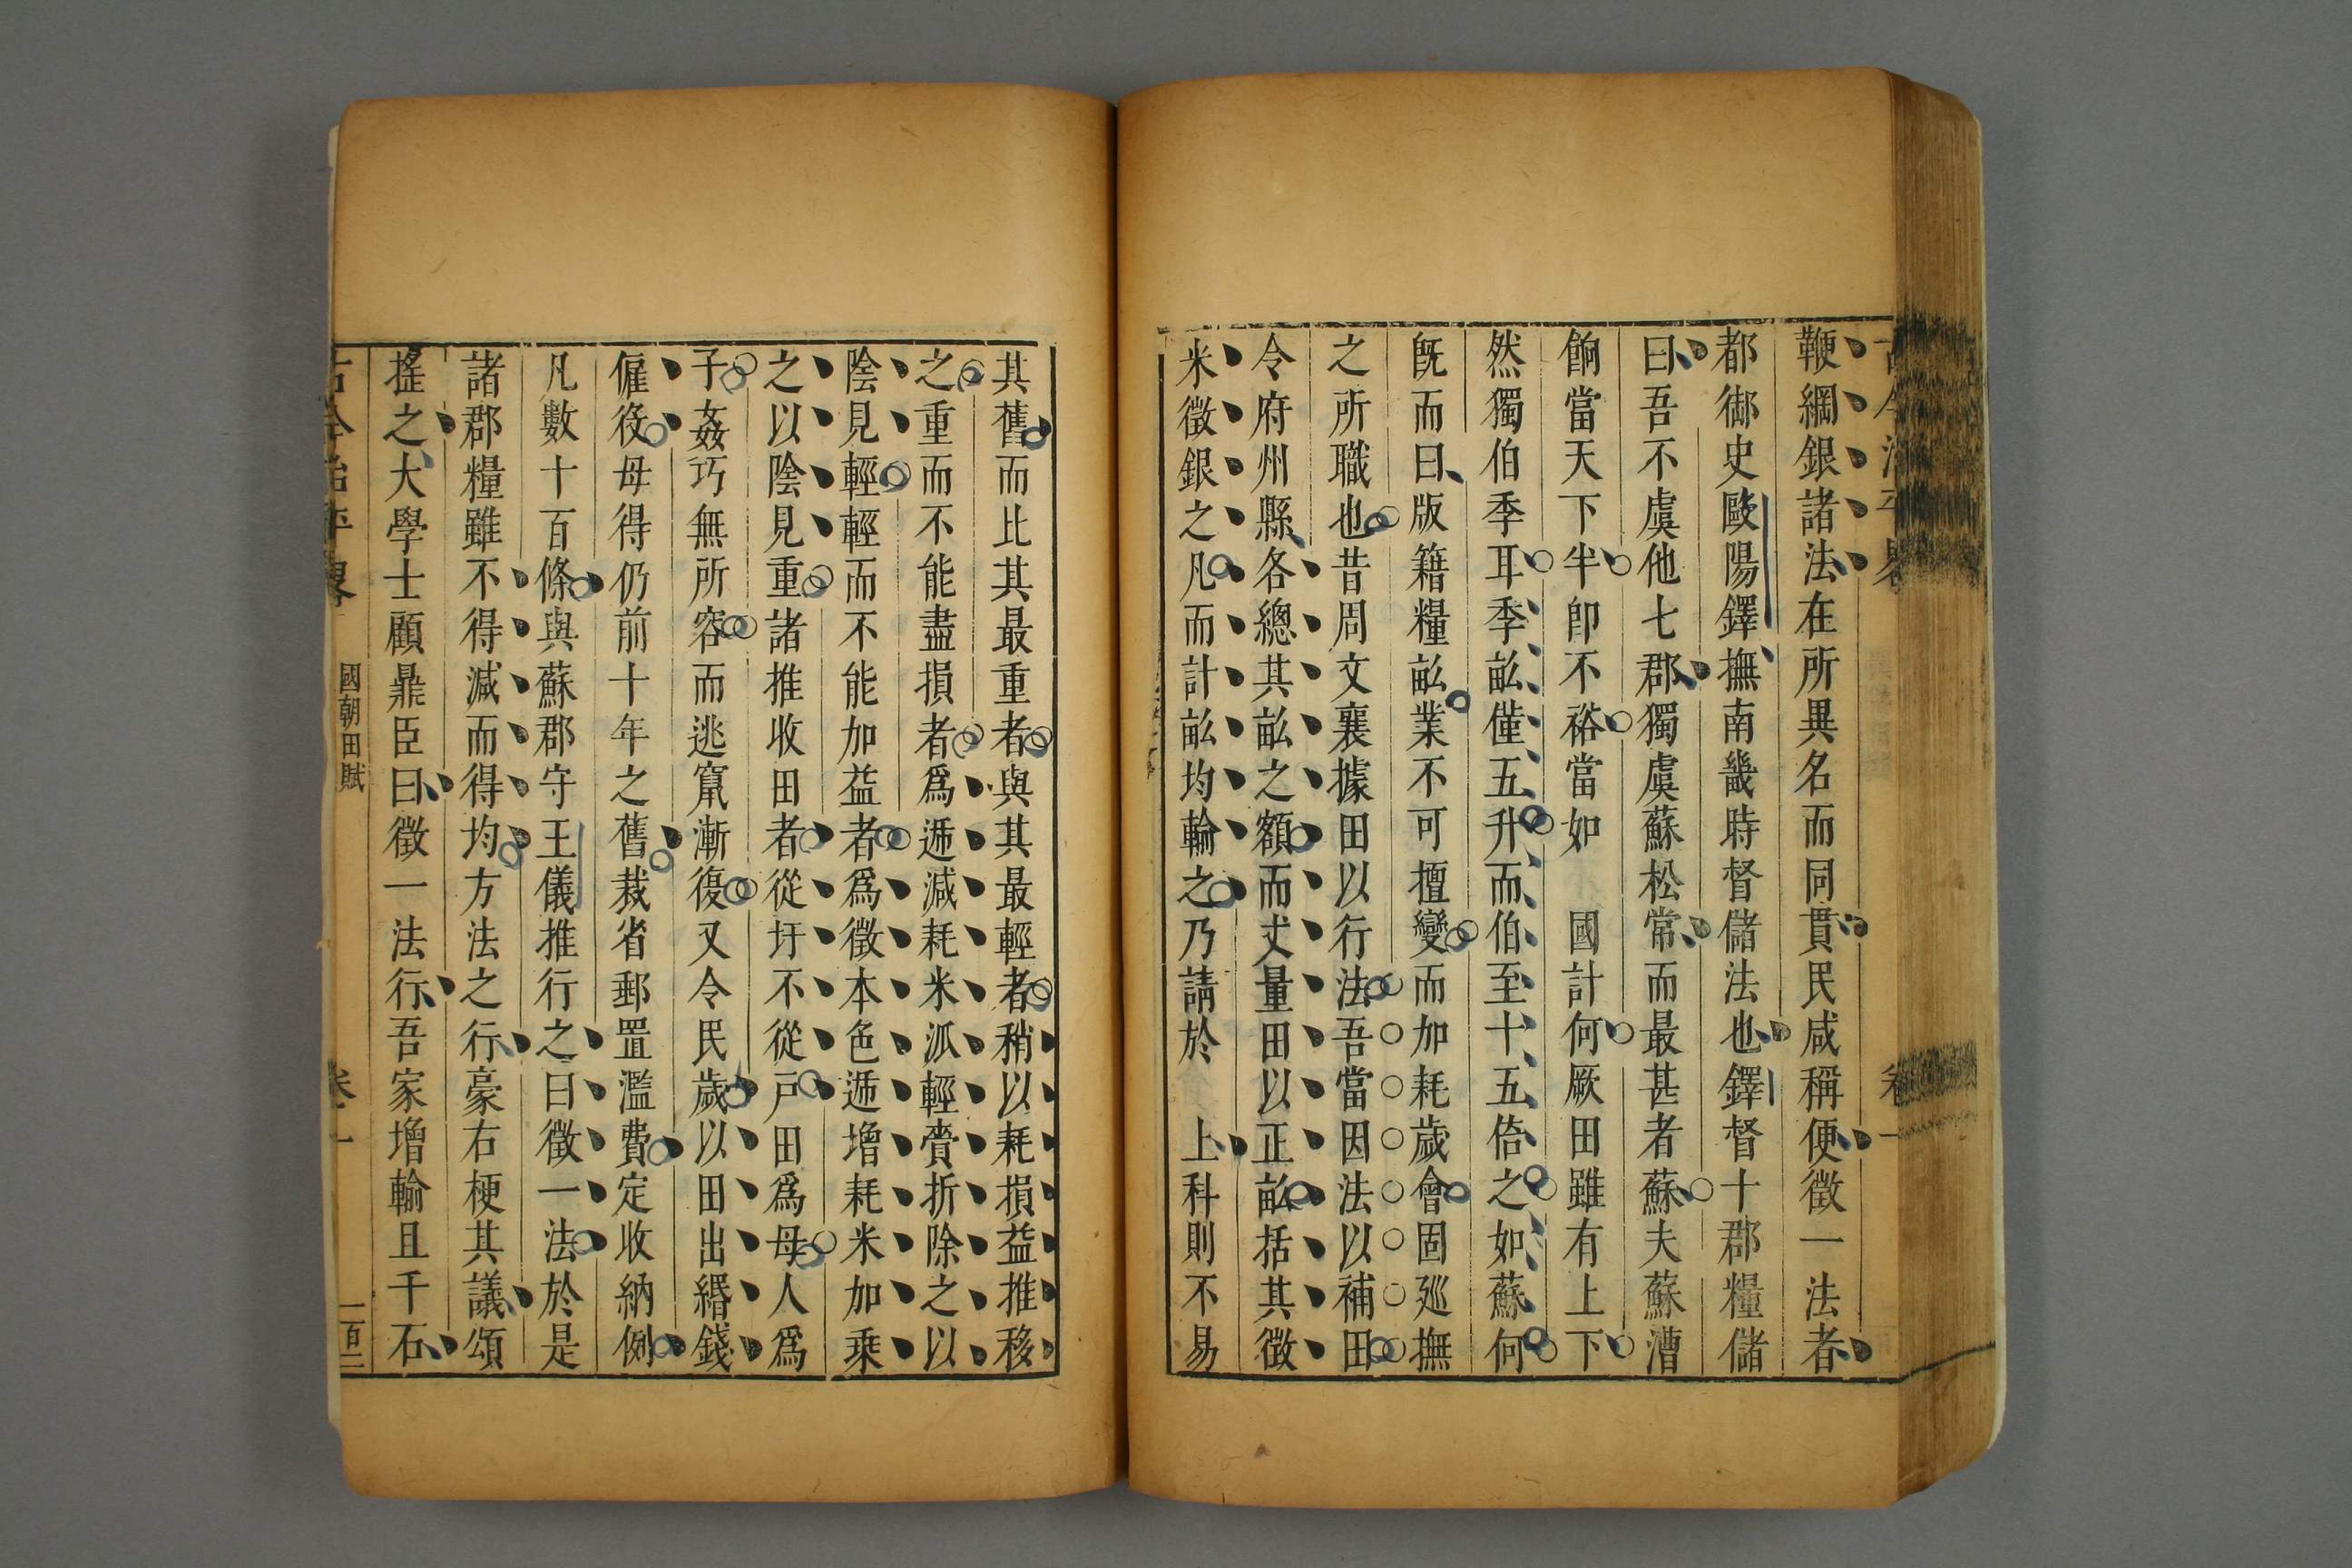 鞭綱銀諸法在所異名而同貫民咸稱便徵一法者
都御史歐陽鐸撫南畿時督儲法也鐸督十郡糧儲
曰吾不虞他七郡獨虞蘇松常而最甚者蘇夫蘇漕
餉當天下半卽不裕當如 國計何厥田雖有上下
然獨伯季耳季畝僅五升而伯至十五倍之如蘇何
旣而曰版籍糧畝業不可擅變而加耗歲會固廵撫
之所職也昔周文襄據田以行法吾當因法以補田
令府州縣各總其畝之額而丈量田以正畝括其徵
米徵銀之凡而計畝均輸之乃請於 上科則不易
其舊而比其最重者與其最輕者稍以耗損益推移
之重而不能盡損者爲逓減耗米泒輕賫折除之以
陰見輕輕而不能加益者爲徵本色逓增耗米加乗
之以陰見重諸推收田者從圩不從戶田爲母人爲
子姦巧無所容而逃竄漸復又令民歲以田出緡錢
僱役毋得仍前十年之舊裁省郵置濫費定收納例
凡數十百條與蘇郡守王儀推行之曰徵一法於是
諸郡糧雖不得減而得均方法之行豪右梗其議頌
搖之大學士顧鼎臣曰徵一法行吾家增輸且千石
古今治平畧 國朝田賦 卷一 一百二